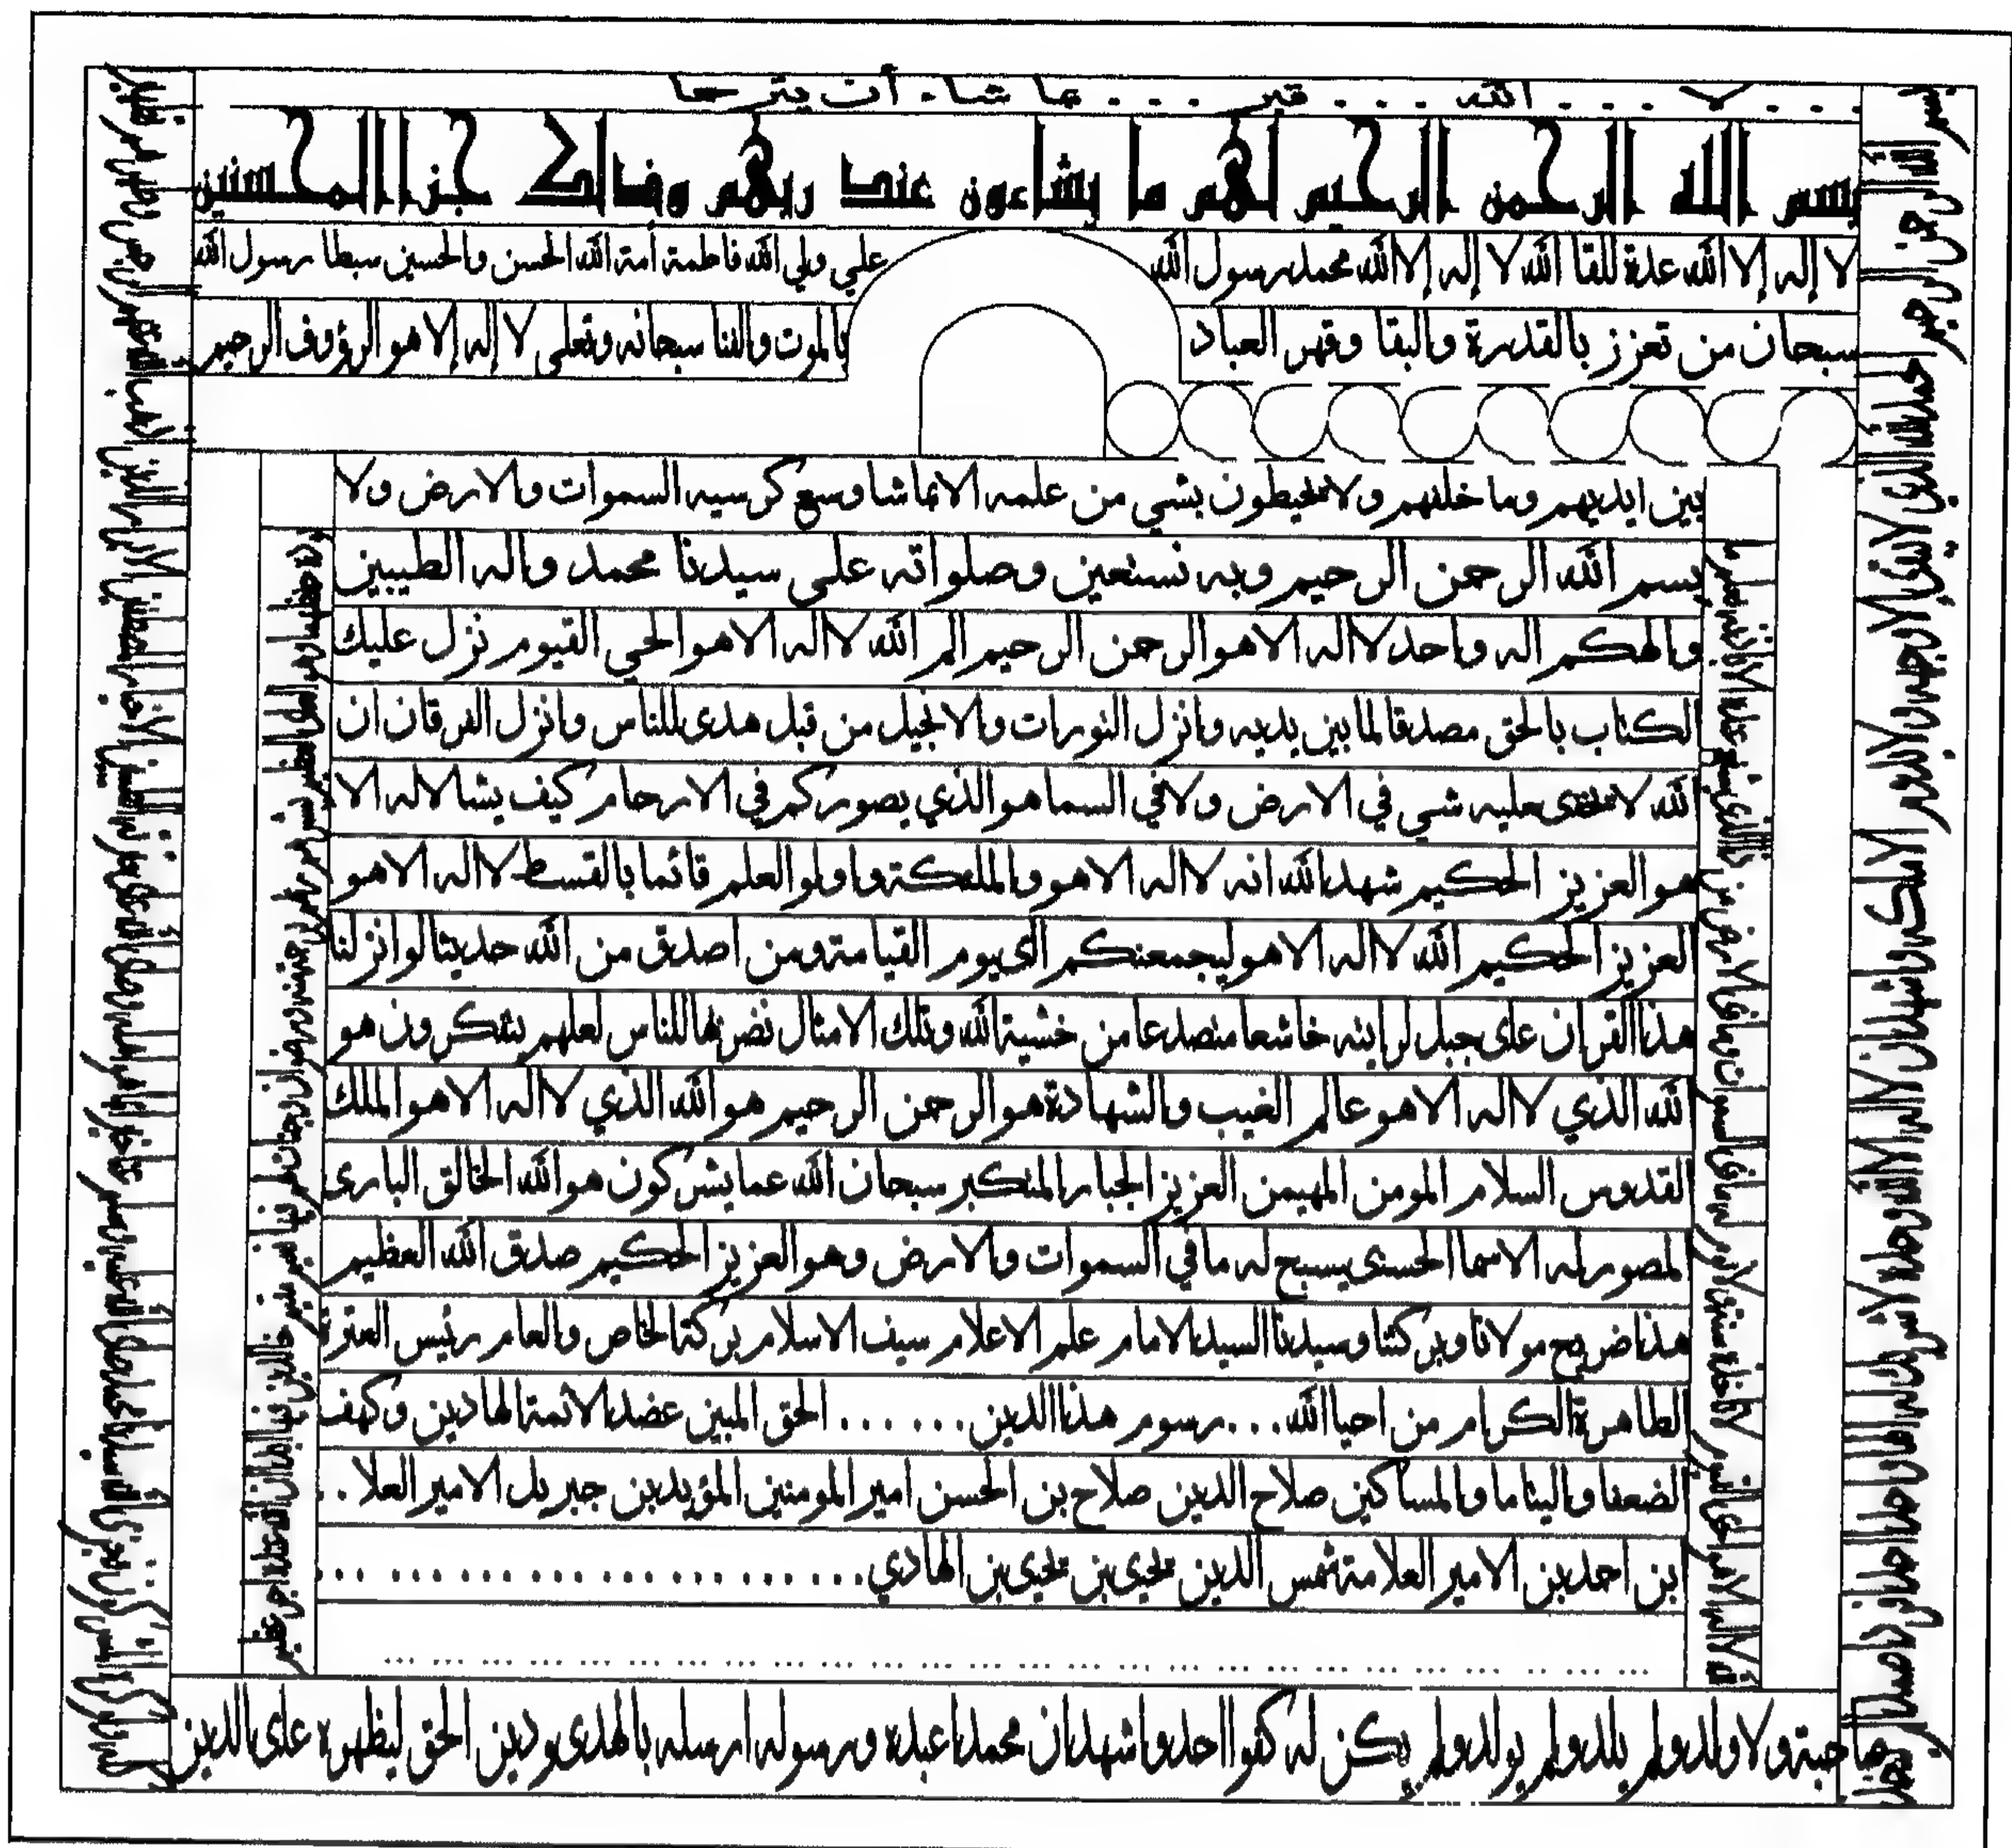 . . . لا . . . الله . . . قبر . . . ما شاء أن يترحما
بسم الله الرحمن الرحيم لهم ما يشاءون عند ربهم وذالك جزا المحسنين
لا إله إلا الله عدة للقا الله لا إله إلا الله محمد رسول الله
علي ولي الله فاطمة أمة الله الحسن والحسين سبطا رسول الله
سبحان من تعزز بالقدرة والبقا وقهر العباد
بالموت والفنا سبحانه وتعلى لا إله إلا هو الرؤوف الرحيم
بين ايديهم وما خلفهم ولا يحيطون بشي من علمه الا بما شا وسع كرسيه السموات والارض ولا
بسم الله الرحمن الرحيم وبه نستعين وصلواته على سيدنا محمد واله الطيبين
والهكم اله واحد لا اله الا هو الرحمن الرحيم الم الله لا اله الا هو الحي القيوم نزل عليك
الكتاب بالحق مصدقا لما بين يديه وانزل التورات والانجيل من قبل هدى للناس وانزل الفرقان ان
الله لا يخفى عليه شي في الارض ولا في السما هو الذي يصوركم في الارحام كيف يشا لا اله الا
هو العزيز الحكيم شهد الله انه لا اله الا هو والملئكة واولو العلم قائما بالقسط لا اله الا هو
العزيز الحكيم الله لا اله الا هو ليجمعنكم الى يوم القيامة ومن اصدق من الله حديثا لو انزلنا
هذا القران على جبل لرايته خاشعا متصدعا من خشية الله وتلك الامثال نضربها للناس لعلهم يتفكرون هو
الله الذي لا اله الا هو عالم الغيب والشهادة هو الرحمن الرحيم هو الله الذي لا اله الا هو الملك
القدوس السلام المومن المهيمن العزيز الجبار المتكبر سبحان الله عما يشركون هو الله الخالق البارى
المصور له الاسما الحسنى يسبح له ما في السموات والارض وهو العزيز الحكيم صدق الله العظيم
هذا ضريح مولانا وبركتنا وسيدنا السيد الامام علم الاعلام سيف الاسلام بركة الخاص والعام رئيس العترة
الطاهرة الكرام من احيا الله . . . رسوم هذا الدين . . . . . . الحق المبين عضد الائمة الهادين وكهف
الضعفا واليتاما والمساكين صلاح الدين صلاح بن الحسن امير المومنين المؤيد بن جبريل الامير العلا . .
بن احمد بن الامير العلامة شمس الدين يحيى بن يحيى بن الهادي
بسم الله الرحمن الرحيم الحمد لله الذي
الا الله وحده لا شريك له
صاحبة ولا ولد ولم يلد ولم يولد ولم يكن له كفوا احد واشهد ان محمدا عبده ورسوله ارسله بالهدى ودين الحق ليظهره على الدين
الله لا اله الا هو الحي القيوم لا تاخذه سنة ولا نوم له ما في السموات وما في الارض من ذا الذي يشفع عنده الا باذنه يعلم ما
وهو العلي العظيم يبشرهم ربهم برحمة منه ورضوان وجنات لهم فيها نعيم مقيم خالدين فيها ابدا ان الله عنده اجر عظيم